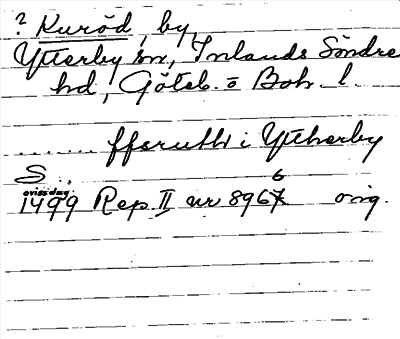 ? Kuröd, by,
Ytterby sn, Inlands Södre
hd, Göteb. o Boh. l.
....... ffseruthi i Ytherby
S.
ovissdag
1499 Rep. II nr 8966 orig.